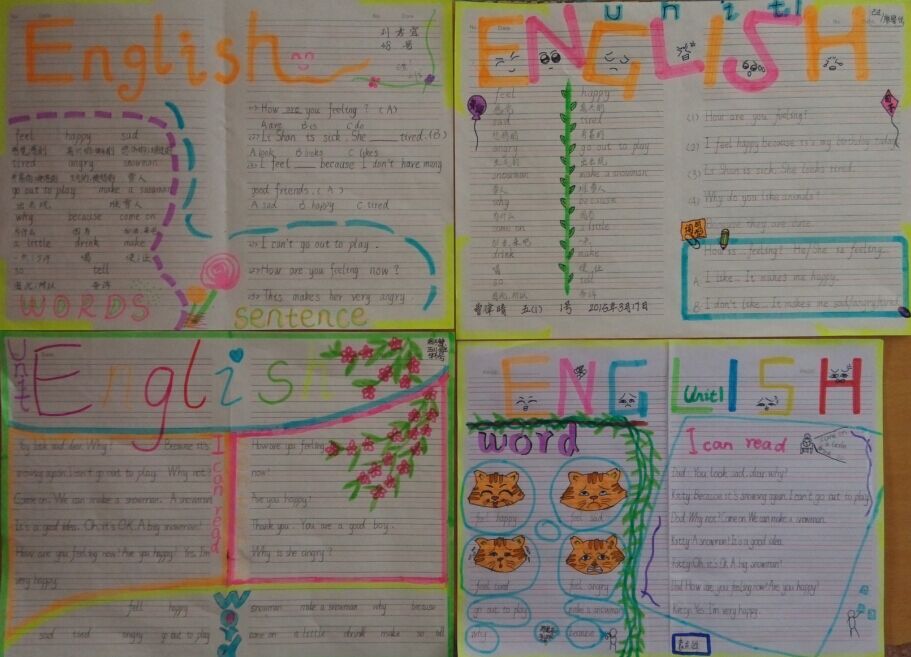 English
feel happy sad
tired angry snowman
go out to play make a snowman
why because come on
为什么 因为
a little drink make
喝 使,让
so tell
告诉
WORDS
How are you feeling? (A)
A are B is C do
Li Shan is sick. She ___ tired. (B)
A look B looks C likes
I feel ___ because I don't have many
good friends. (A)
A sad B happy C tired
I can't go out to play.
How are you feeling now?
This makes her very angry.
sentence
unit1
ENGLISH
feel happy
sad
tired
angry go out to play
make a snowman
雪人
why because
为什么
come on a little
drink make
喝 使,让
so tell
告诉
五(1) 1号 2015年3月17日
(1) How are you feeling?
(2) I feel happy because is a my birthday today.
(3) Li Shan is sick. She looks tired.
(4) Why do you like animals?
they are cute.
How is ... feeling? He/She is feeling...
A: I like... It makes me happy.
B: I don't like... It makes me sad/angry/tired.
Unit
English
You look sad dear. Why? Because it's
snowing again. I can't go out to play. Why not?
Come on. We can make a snowman. A snowman!
It's a good idea. Oh, it's OK. A big snowman!
How are you feeling now? Are you happy? Yes, I'm
very happy.
I can read
How are you feeling
now?
Are you happy?
Thank you. You are a good boy.
Why is she angry?
Word
feel happy snowman make a snowman why because
sad tired angry go out to play come on a little drink make so tell
ENGLISH
Unit1
word
feel happy feel sad
feel tired feel angry
go out to play make a snowman
why because
I can read
Dad: You look sad, dear. Why?
Kitty: Because it's snowing again. I can't go out to play.
Dad: Why not? Come on. We can make a snowman.
Kitty: A snowman! It is a good idea.
Kitty: Oh, it's OK. A big snowman!
Dad: How are you feeling now? Are you happy?
Kitty: Yes, I'm very happy.